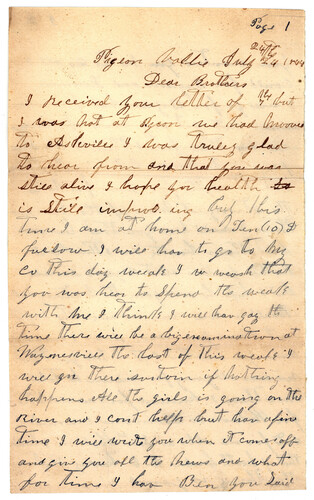 Page 1
Pigeon Vallie July 24 1864
Dear Brothers
I received your letter of but
I was not at we had moove
to Asheville I was truley glad
to hear from and that you was
still alive I hope you health is
is still improv ing but this
time I am at home on Ten (10) D
furlow I will hav to go to My
Co this day weak I w wish that
you was hear to Spend the weak
with Me I think I will hav gay the
time there will be a big examination at
Waynesville the last of this weak I
will giv there if nothing
happens All the girls is going on the
River and I cant help but hav a fine
time I will write you when it comes off
and giv you all the news and what
for time I hav Ben you said